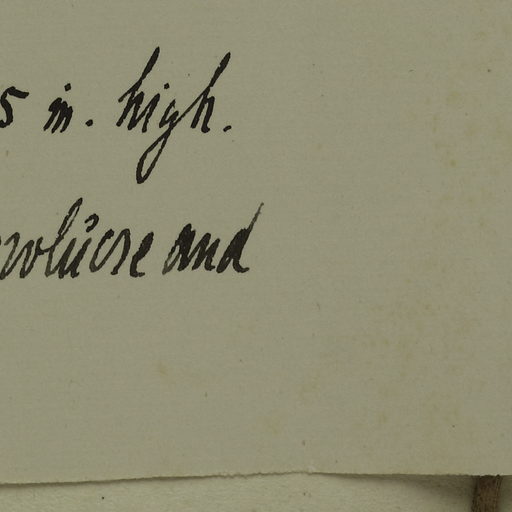 5 in. high.
volucre and